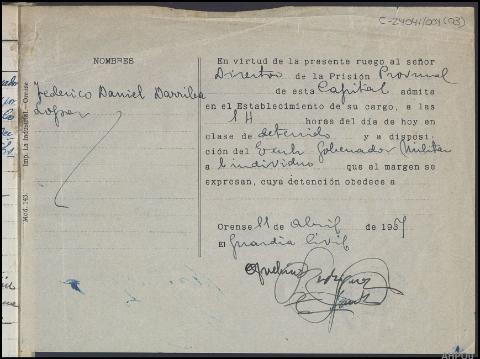 C-24041/001 (03)
NOMBRES
Federico Daniel Darriba
Lopez
En virtud de la presente ruego al señor
Director de la Prisión Provincial
de esta Capital admita
en el Establecimiento de su cargo, a las
horas del día de hoy en
clase de detenido y a disposi-
ción del Gobernador Militar
a l individuo que el margen se
expresan, cuya detención obedece a
Orense 11 de Abril de 1937
El Guardia Civil
Imp. La Industrial.-Orense
Mod. 143
AHPOU